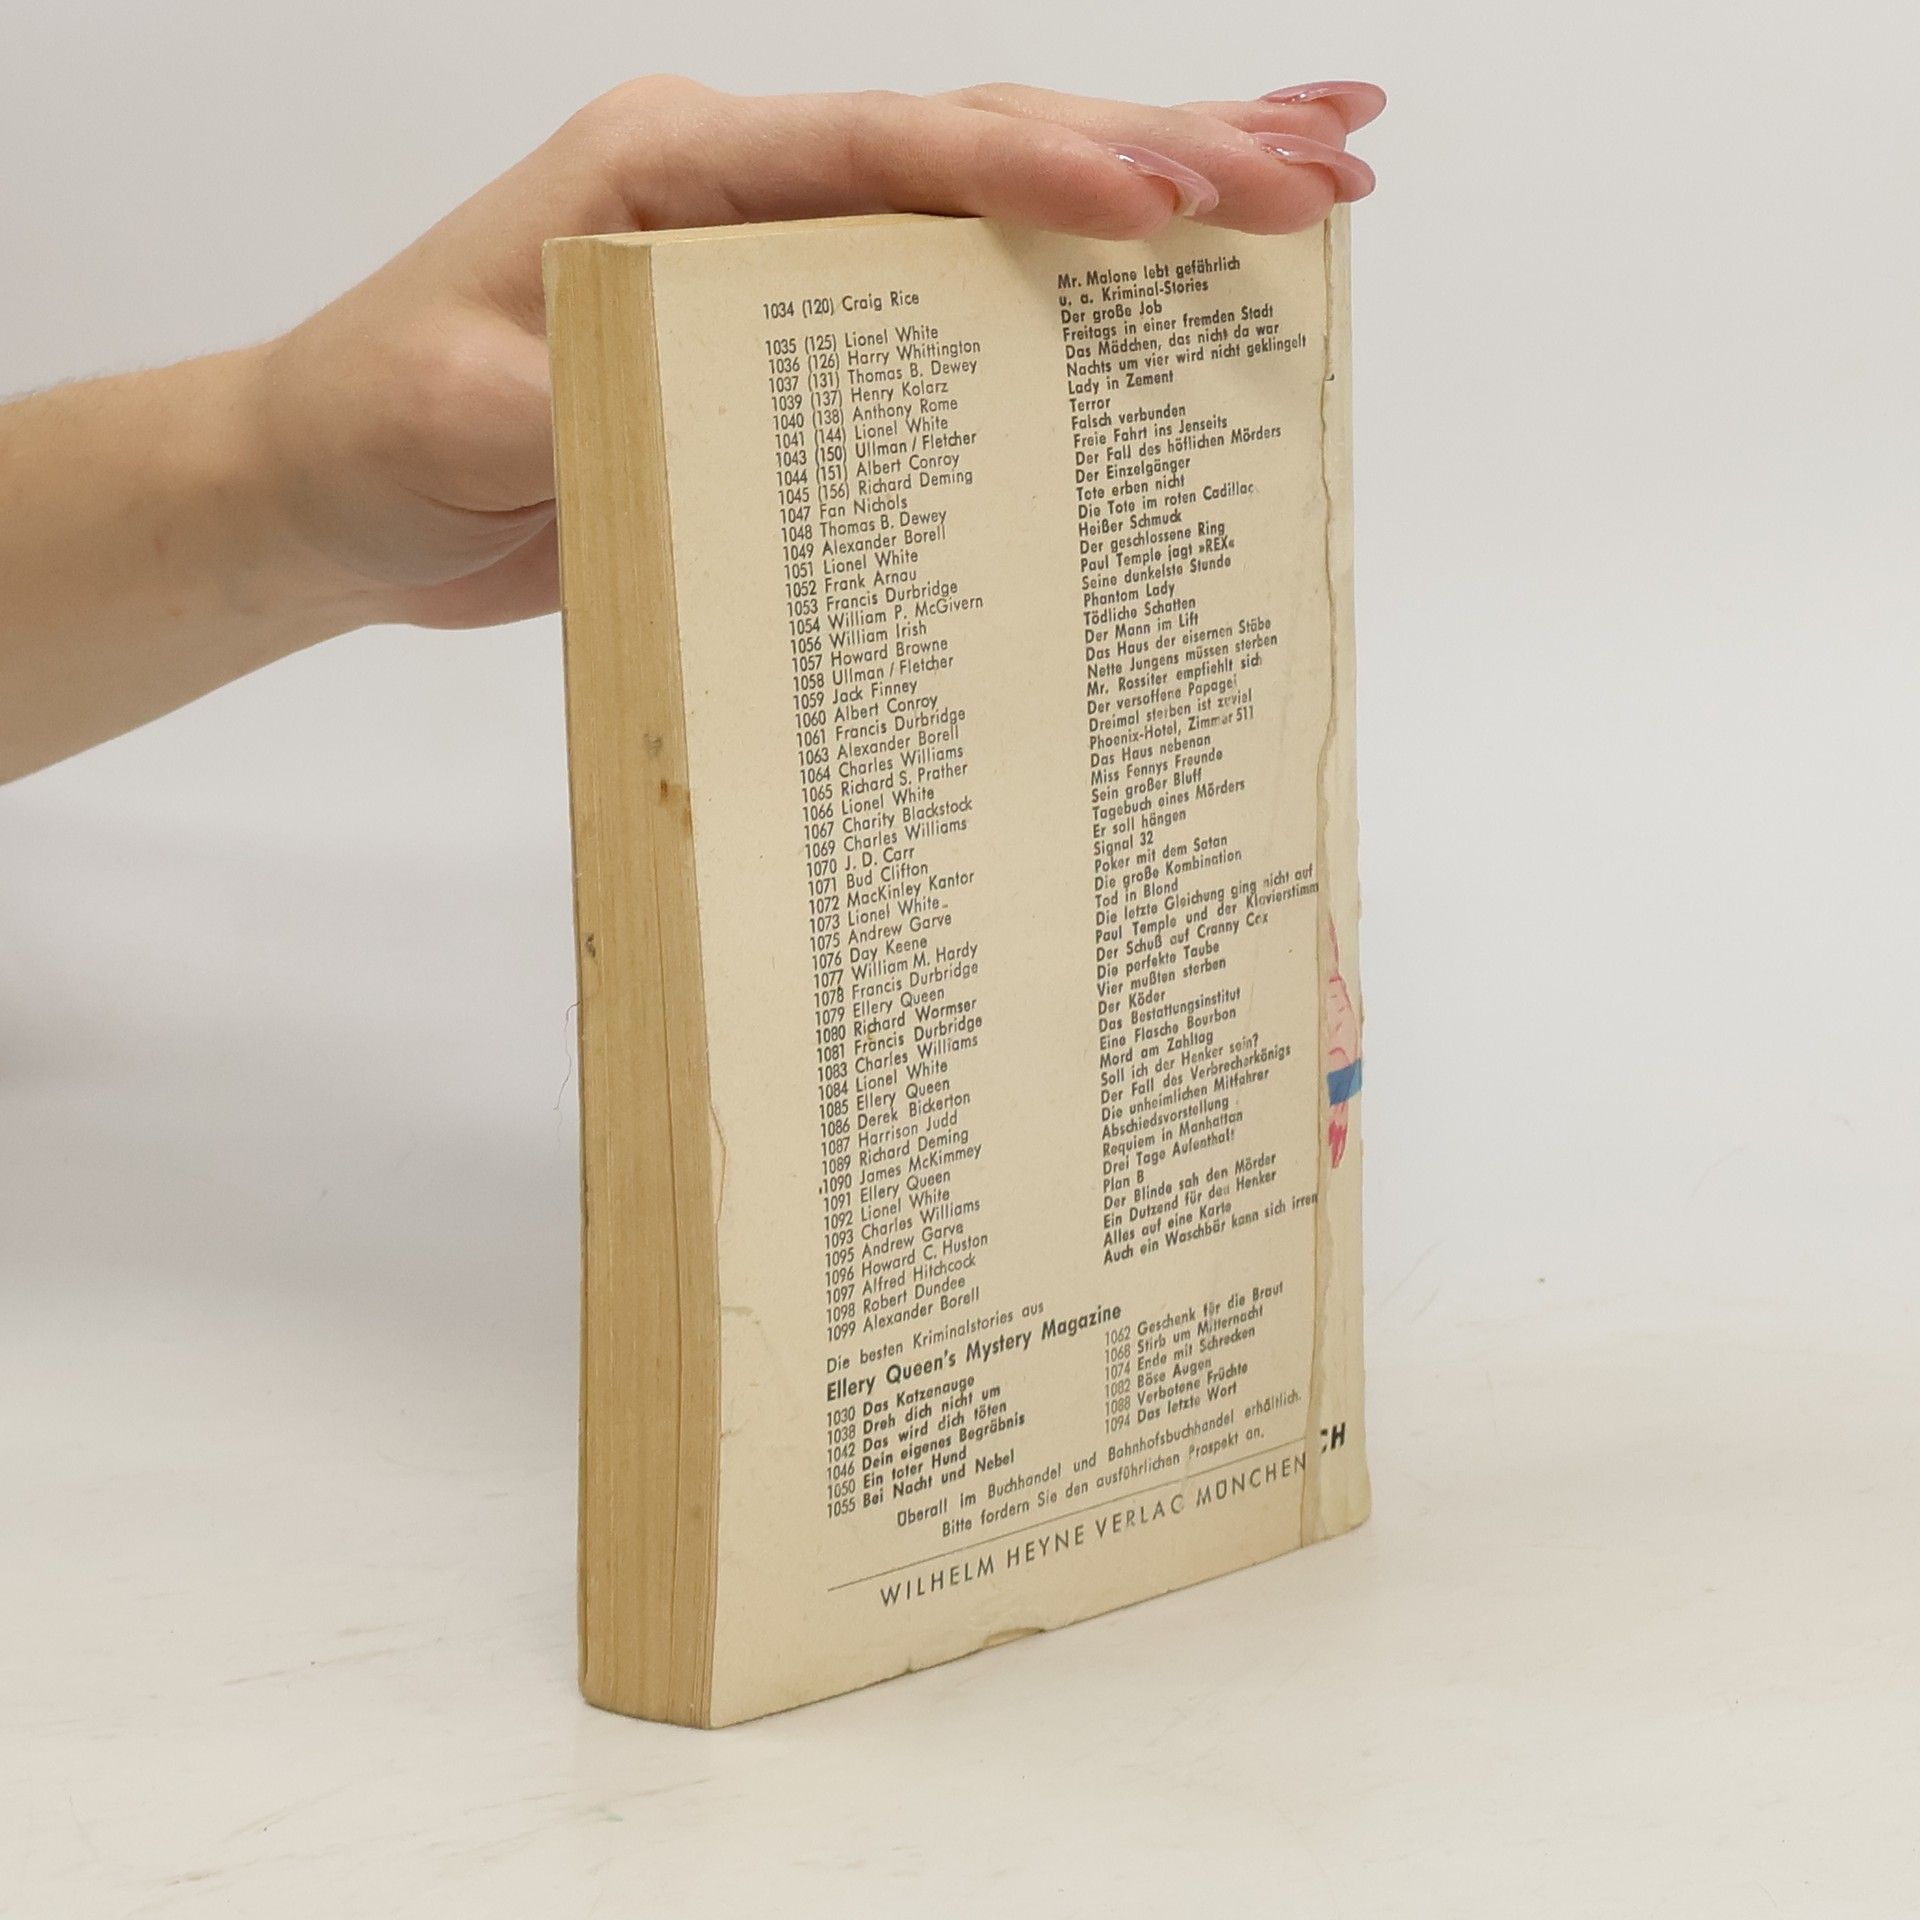 1034 (120) Craig Rice
1035 (125) Lionel White
1036 (126) Harry Whittington
1037 (131) Thomas B. Dewey
1039 (137) Henry Kolarz
1040 (138) Anthony Rome
1041 (144) Lionel White
1043 (150) Ullman / Fletcher
1044 (151) Albert Conroy
1045 (156) Richard Deming
1047 Fan Nichols
1048 Thomas B. Dewey
1049 Alexander Borell
1051 Lionel White
1052 Frank Arnau
1053 Francis Durbridge
1054 William P. McGivern
1056 William Irish
1057 Howard Browne
1058 Ullman / Fletcher
1059 Jack Finney
1060 Albert Conroy
1061 Francis Durbridge
1063 Alexander Borell
1064 Charles Williams
1065 Richard S. Prather
1066 Lionel White
1067 Charity Blackstock
1069 Charles Williams
1070 J. D. Carr
1071 Bud Clifton
1072 MacKinley Kantor
1073 Lionel White
1075 Andrew Garve
1076 Day Keene
1077 William M. Hardy
1078 Francis Durbridge
1079 Ellery Queen
1080 Richard Wormser
1081 Francis Durbridge
1083 Charles Williams
1084 Lionel White
1085 Ellery Queen
1086 Derek Bickerton
1087 Harrison Judd
1089 Richard Deming
1090 James McKimmey
1091 Ellery Queen
1092 Lionel White
1093 Charles Williams
1095 Andrew Garve
1096 Howard C. Huston
1097 Alfred Hitchcock
1098 Robert Dundee
1099 Alexander Borell
Mr. Malone lebt gefährlich
u. a. Kriminal-Stories
Der große Job
Freitags in einer fremden Stadt
Das Mädchen, das nicht da war
Nachts um vier wird nicht geklingelt
Lady in Zement
Terror
Falsch verbunden
Freie Fahrt ins Jenseits
Der Fall des höflichen Mörders
Der Einzelgänger
Tote erben nicht
Die Tote im roten Cadillac
Heißer Schmuck
Der geschlossene Ring
Paul Temple jagt »REX«
Seine dunkelste Stunde
Phantom Lady
Tödliche Schatten
Der Mann im Lift
Das Haus der eisernen Stäbe
Nette Jungens müssen sterben
Mr. Rossiter empfiehlt sich
Der versoffene Papagei
Dreimal sterben ist zuviel
Phoenix-Hotel, Zimmer 511
Das Haus nebenan
Miss Fennys Freunde
Sein großer Bluff
Tagebuch eines Mörders
Er soll hängen
Signal 32
Poker mit dem Satan
Die große Kombination
Tod in Blond
Die letzte Gleichung ging nicht auf
Paul Temple und der Klavierstimm
Der Schuß auf Cranny Cox
Die perfekte Taube
Vier mußten sterben
Der Köder
Das Bestattungsinstitut
Eine Flasche Bourbon
Mord am Zahltag
Soll ich der Henker sein?
Der Fall des Verbrecherkönigs
Die unheimlichen Mitfahrer
Abschiedsvorstellung
Requiem in Manhattan
Drei Tage Aufenthalt
Plan B
Der Blinde sah den Mörder
Ein Dutzend für den Henker
Alles auf eine Karte
Auch ein Waschbär kann sich irren
Die besten Kriminalstories aus
Ellery Queen's Mystery Magazine
1030 Das Katzenauge
1038 Dreh dich nicht um
1042 Das wird dich töten
1046 Dein eigenes Begräbnis
1050 Ein toter Hund
1055 Bei Nacht und Nebel
1062 Geschenk für die Braut
1068 Stirb um Mitternacht
1074 Ende mit Schrecken
1082 Böse Augen
1088 Verbotene Früchte
1094 Das letzte Wort
Überall im Buchhandel und Bahnhofsbuchhandel erhältlich.
Bitte fordern Sie den ausführlichen Prospekt an.
WILHELM HEYNE VERLAG MÜNCHEN
CH